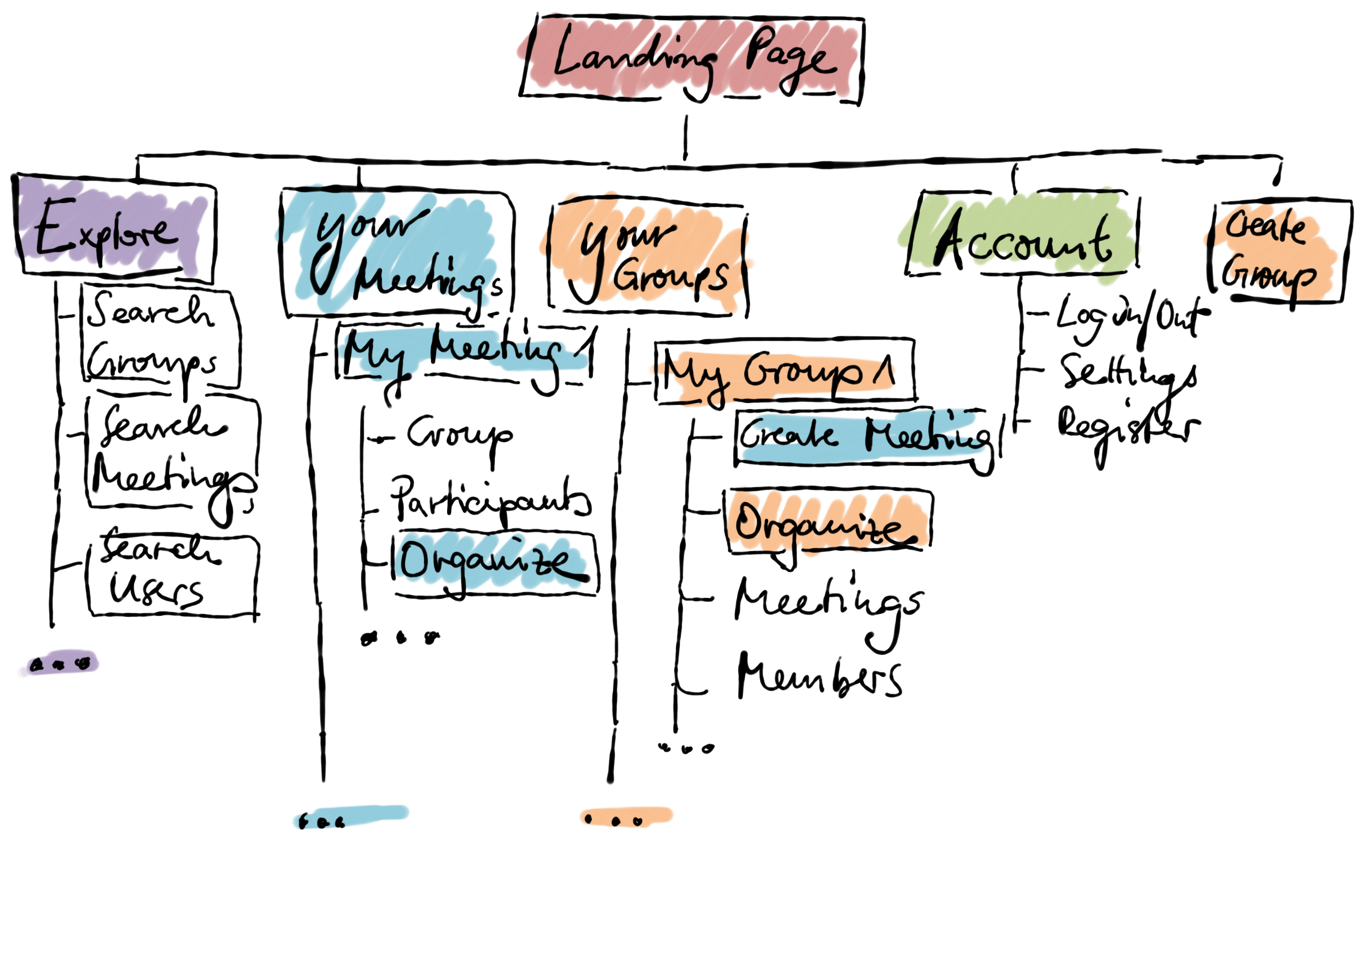 Landing Page
Explore
Search
Groups
Search
Meetings
Search
Users
...
your
Meetings
My Meeting 1
Group
Participants
Organize
...
...
your
Groups
My Group 1
Create Meeting
Organize
Meetings
Members
...
...
Account
Log in/Out
Settings
Register
Create
Group